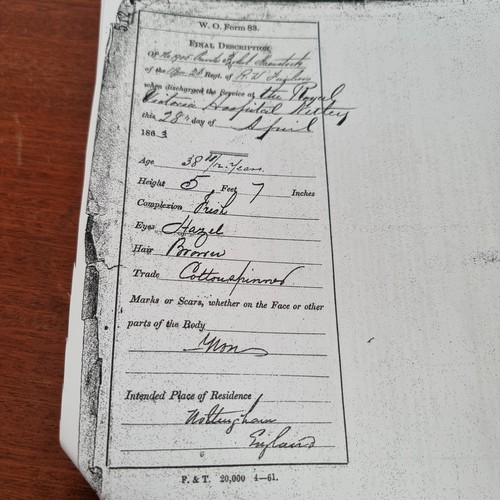 W. O. Form 83.
FINAL DESCRIPTION
Of No 1905
of the 2d Regt. of R. V. Fusiliers
when discharged the Service at the Royal
Victoria Hospital Netley
this 28th day of April
186
Age 38 years
Height 5 Feet 7 Inches
Complexion Fresh
Eyes Hazel
Hair Brown
Trade Cottonspinner
Marks or Scars, whether on the Face or other
parts of the Body
Intended Place of Residence
Nottingham
England
F. & T. 20,000 4—61.